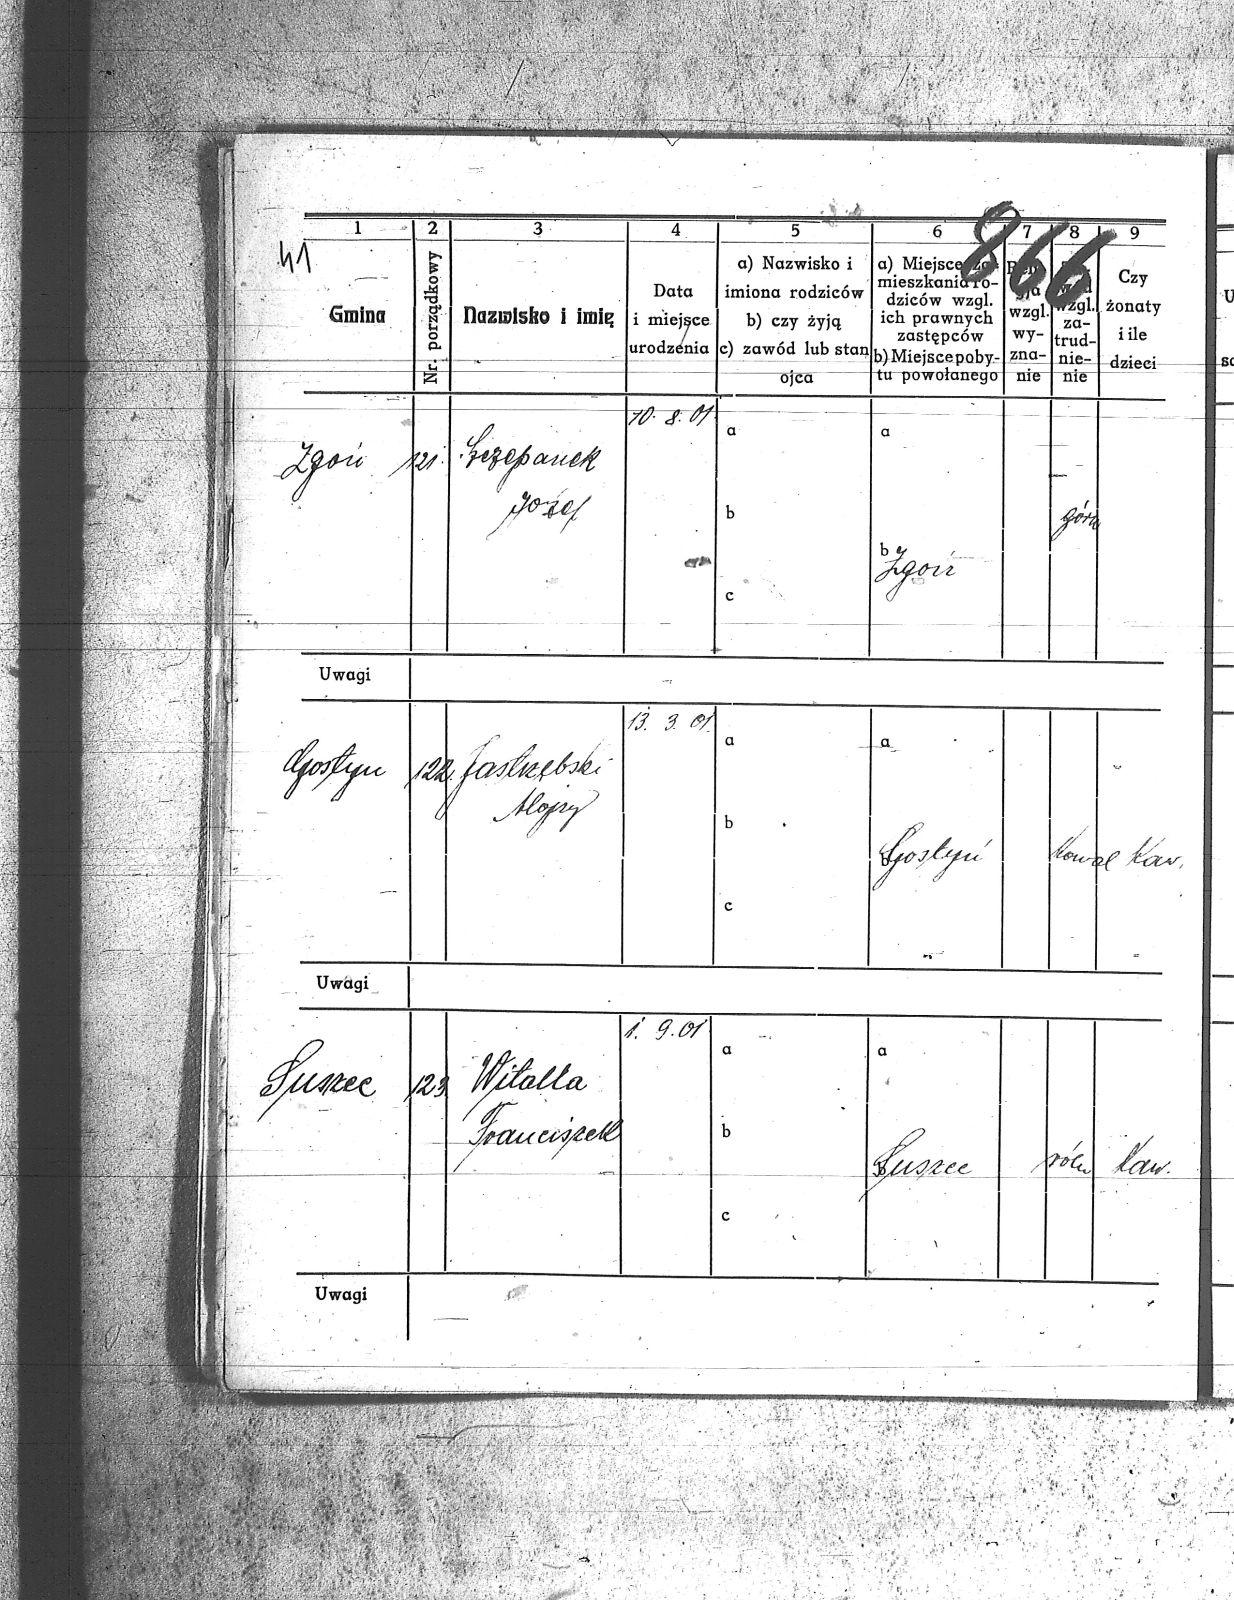 866
41
1 2 3 4 5 6 7 8 9
Gmina
Nr. porządkowy
Nazwisko i imię
Data
i miejsce
urodzenia
a) Nazwisko i
imiona rodziców
b) czy żyją
c) zawód lub stan
ojca
a) Miejsce za-
mieszkania ro-
dziców wzgl.
ich prawnych
zastępców
b) Miejsce poby-
tu powołanego
wzgl.
wy-
zna-
nie
wzgl.
za-
trud-
nie-
nie
Czy
żonaty
i ile
dzieci
10. 8. 01
a a
Zgoń 121. Szczepanek
Józef
b górn
b Zgoń
c
Uwagi
13. 3. 01
a a
Gostyń 122. Jastrzębski
Alojzy
b
b Gostyń Kowal Kaw.
c
Uwagi
1. 9. 01
a a
Suszec 123 Witalla
Franciszek
b
b Suszec róln Kaw.
c
Uwagi